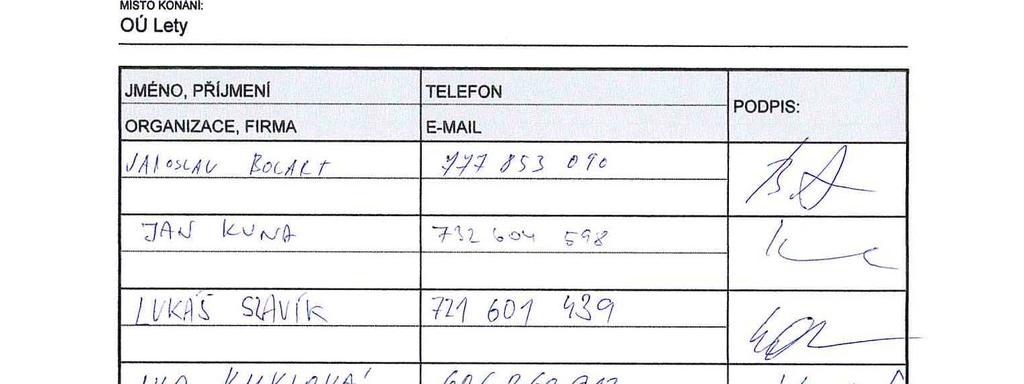 MÍSTO KONÁNÍ:
OÚ Lety
JMÉNO, PŘÍJMENÍ TELEFON PODPIS:
ORGANIZACE, FIRMA E-MAIL
JAROSLAV BOCART 777 853 090
JAN KUNA 732 604 598
LUKÁŠ SLAVÍK 721 601 439